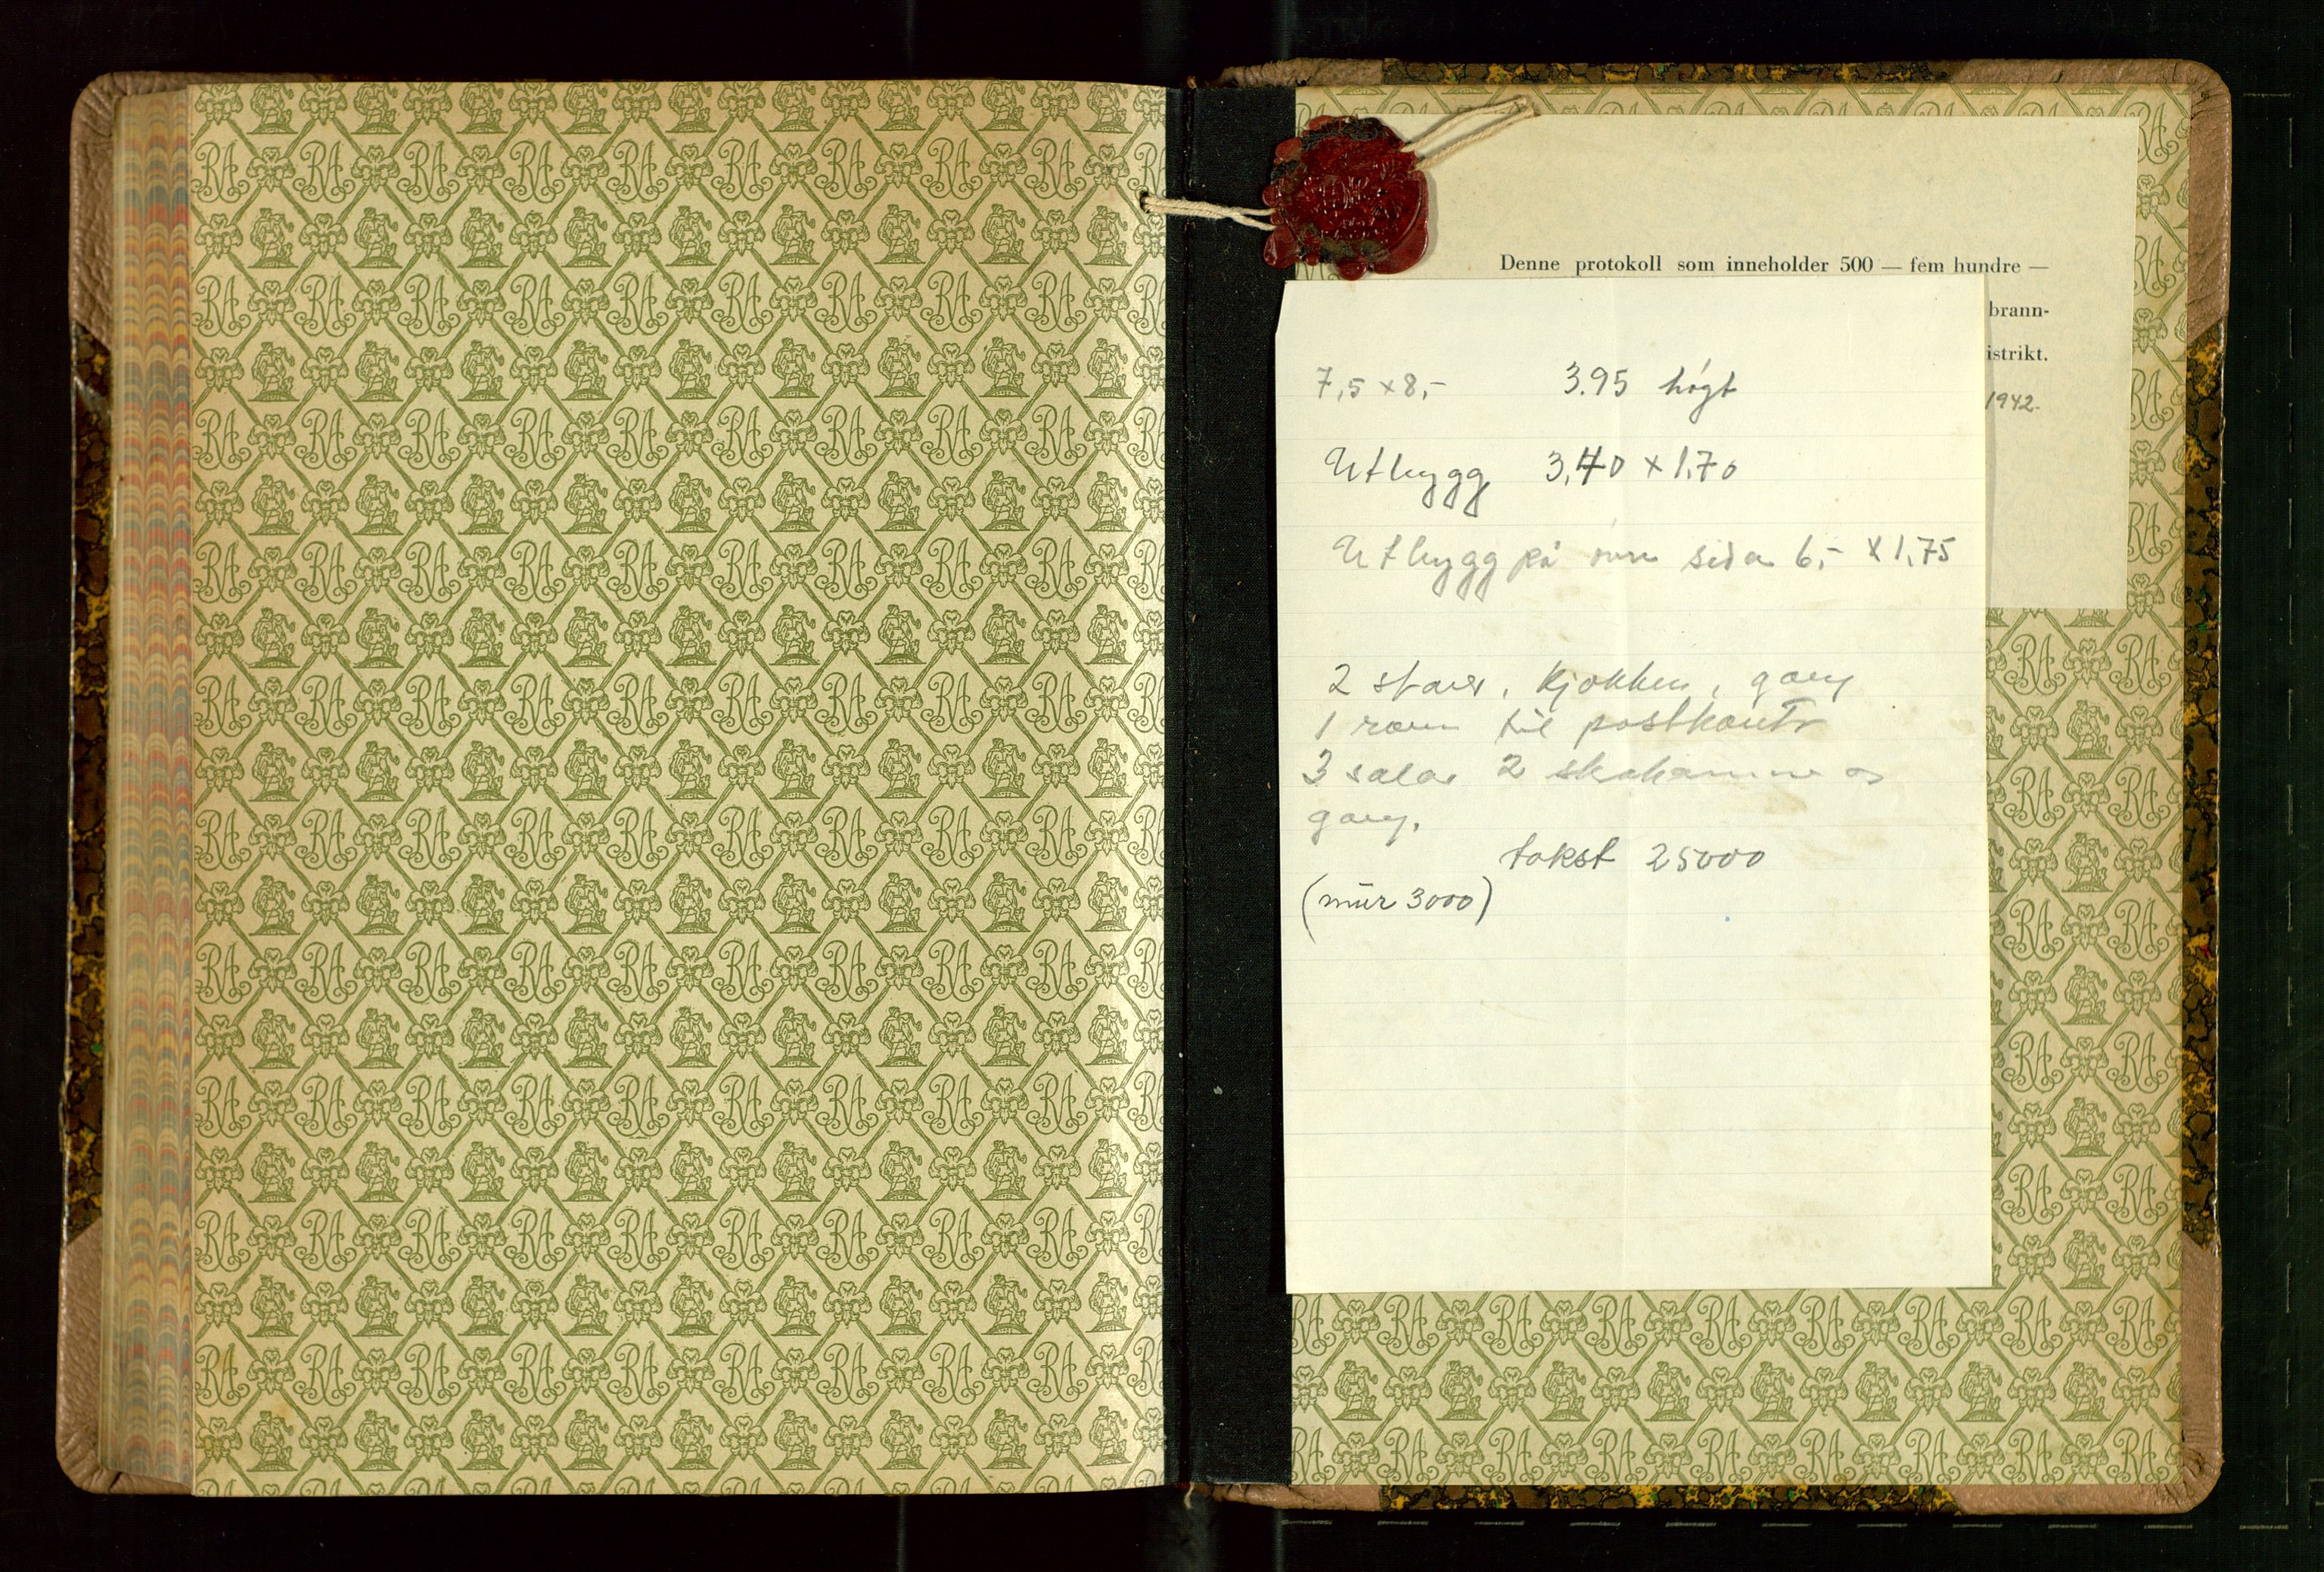 Denne protokoll som inneholder 500 — fem hundre —
brann-
istrikt.
1942.
7,5 × 8,- 3.95 høgt
Utbygg 3,40 × 1,70
Utbygg på sida 6,- × 1,75
2 stover, kjøkken, gang
1 rom til postkontr
3 salar 2 skakamme og
gang.
takst 25000
(mur 3000)